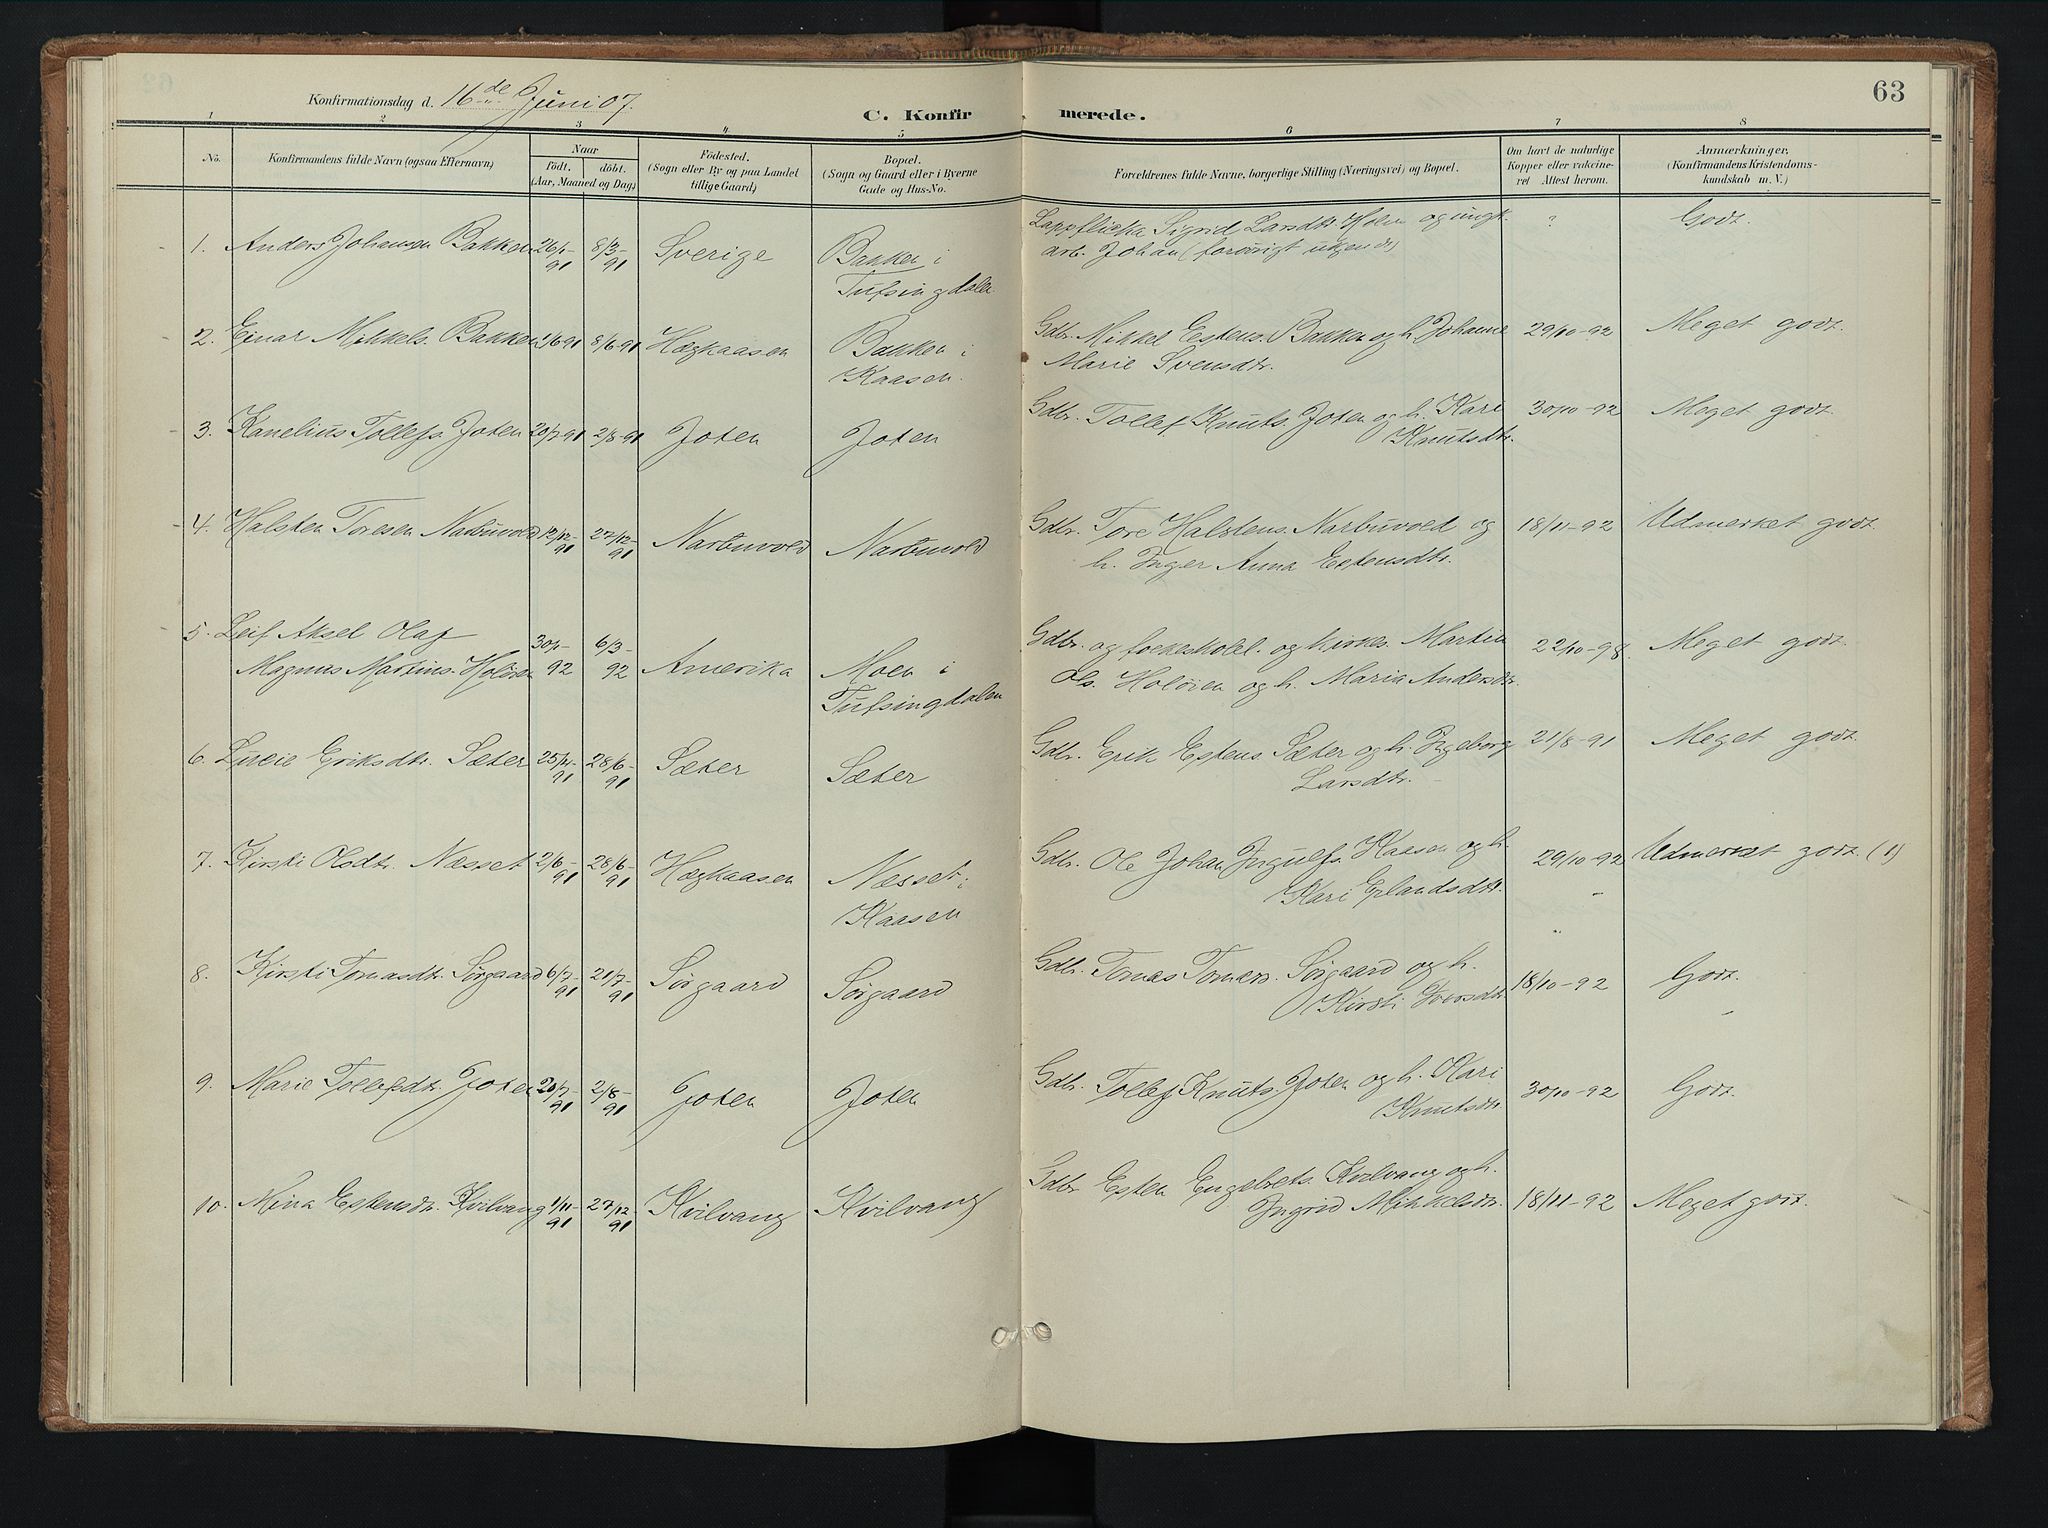 63
Konfirmationsdag d. 16de Juni 07.
C. Konfirmerede.
1 2 3 4 5 6 7 8
No.
Konfirmandens fulde Navn (ogsaa Efternavn)
Naar
födt. döbt.
(Aar, Maaned og Dag)
Födested.
(Sogn eller By og paa Landet
tillige Gaard)
Bopæl.
(Sogn og Gaard eller i Byerne
Gade og Hus-No.
Forældrenes fulde Navne, borgerlige Stilling (Næringsvei) og Bopæl.
Om havt de naturlige
Kopper eller vakcine-
ret Attest herom.
Anmærkninger.
(Konfirmandens Kristendoms-
kundskab m. V.)
1. Anders Johansen Bakken 26/1-91 8/3-91 Sverige Bakken i
Tufsingdalen
Lappflicka Sigrid Larsdtr. Holm og ungk.
arb. Johan (forövrigt ukjendt) ? Godt.
2. Einar Mikkels. Bakken 1/6 91 8/6-91 Hægkaasen Bakken i
Kaasen.
Gdbr. Mikkel Estens. Bakken og h. Johanne
Marie Svensdtr. 29/10-92 Meget godt.
3. Kanelius Tollefs. Joten 20/7 91 2/8-91 Joten Joten
Gdbr. Tollef Knuts. Joten og h. Kari
Knutsdtr. 30/10-92 Meget godt.
4. Halsten Toresen Narbuvold 12/12-91 27/12-91 Narbuvold Narbuvold
Gdbr. Tore Halstens. Narbuvold og
h. Inger Anna Estensdtr. 18/11-92 Udmerket godt.
5. Leif Aksel Olaf
Magnus Martins. Holöien 30/1-92 6/3-92 Amerika Moen i
Tufsingdalen
Gdbr. og folkeskolel. og kirkes. Martin
Ols. Holöien og h. Maria Andersdtr. 22/10-98. Meget godt.
6. Lucie Eriksdtr. Sæter 25/4-91 28/6-91 Sæter Sæter
Gdbr. Erik Estens. Sæter og h. Ingeborg
Larsdtr. 21/8-91 Meget godt.
7. Kirsti Olsdtr. Næsset 2/6-91 28/6-91 Hægkaasen Næsset i
Kaasen
Gdbr. Ole Johan Ingulfs. Kaasen og h.
Kari Erlandsdtr. 29/10-92 Udmerket godt. (1)
8. Kirsti Tomasdtr. Sörgaard 6/7-91 21/7-91 Sörgaard Sörgaard
Gdbr. Tomas Tomass. Sörgaard og h.
Kirsti Iversdtr. 18/10-92 Godt.
9. Marie Tollefsdtr. Joten 20/7-91 2/8-91 Joten Joten
Gdbr. Tollef Knuts. Joten og h. Kari
Knutsdtr. 30/10-92 Godt.
10. Mina Estensdtr. Kvilvang 1/11-91 27/12-91 Kvilvang Kvilvang
Gdbr. Esten Engebrets. Kvilvang og h.
Ingrid Mikkelsdtr. 18/11-92 Meget godt.